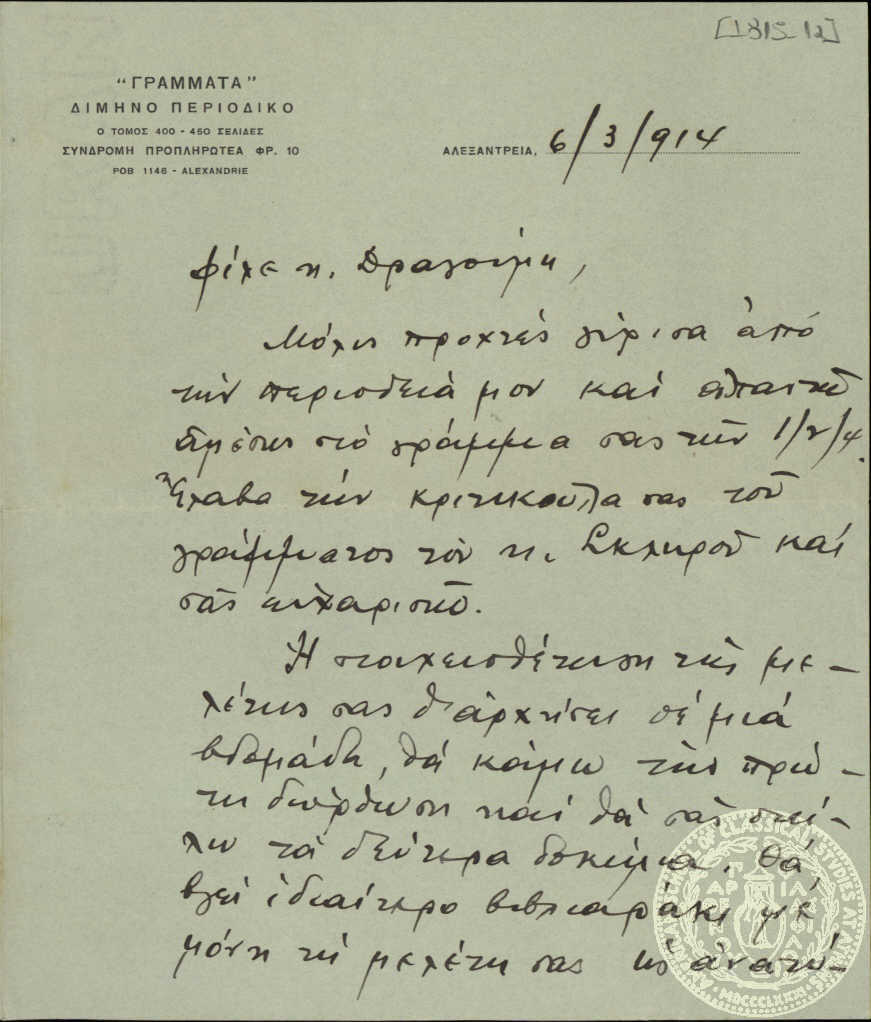 [1815_12]
"ΓΡΑΜΜΑΤΑ"
ΔΙΜΗΝΟ ΠΕΡΙΟΔΙΚΟ
Ο ΤΟΜΟΣ 400 - 450 ΣΕΛΙΔΕΣ
ΣΥΝΔΡΟΜΗ ΠΡΟΠΛΗΡΩΤΕΑ ΦΡ. 10
POB 1146 - ALEXANDRIE
ΑΛΕΞΑΝΤΡΕΙΑ, 6/3/914
Φίλε κ. Δραγούμη,
Μόλις προχτές γύρισα ἀπό
τήν περιοδεία μου καί ἀπαντῶ
ἀμέσως στό γράμμα σας τῆς
Ἔλαβα τήν κριτικούλα σας τοῦ
γράμματος τοῦ κ. Σκληροῦ καί
σᾶς εὐχαριστῶ.
Ἡ στοιχειοθέτηση τῆς με-
λέτης σας θ' ἀρχίσει σέ μιά
βδομάδα, θά κάμω τήν πρώ-
τη διόρθωση καί θά σᾶς στεί-
λω τά δεύτερα δοκίμια. Θά
βγεῖ ἰδιαίτερο βιβλιαράκι μέ
μόνη τή μελέτη σας ὡς ἀνατύ-
OF CLASSICAL STUDIES AT
MDCCCLXXXI